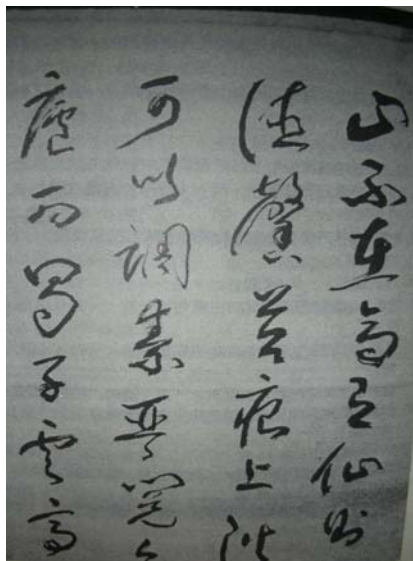 山不在高有仙則
德馨苔痕上階
可以調素琴閱
廬西蜀子雲亭